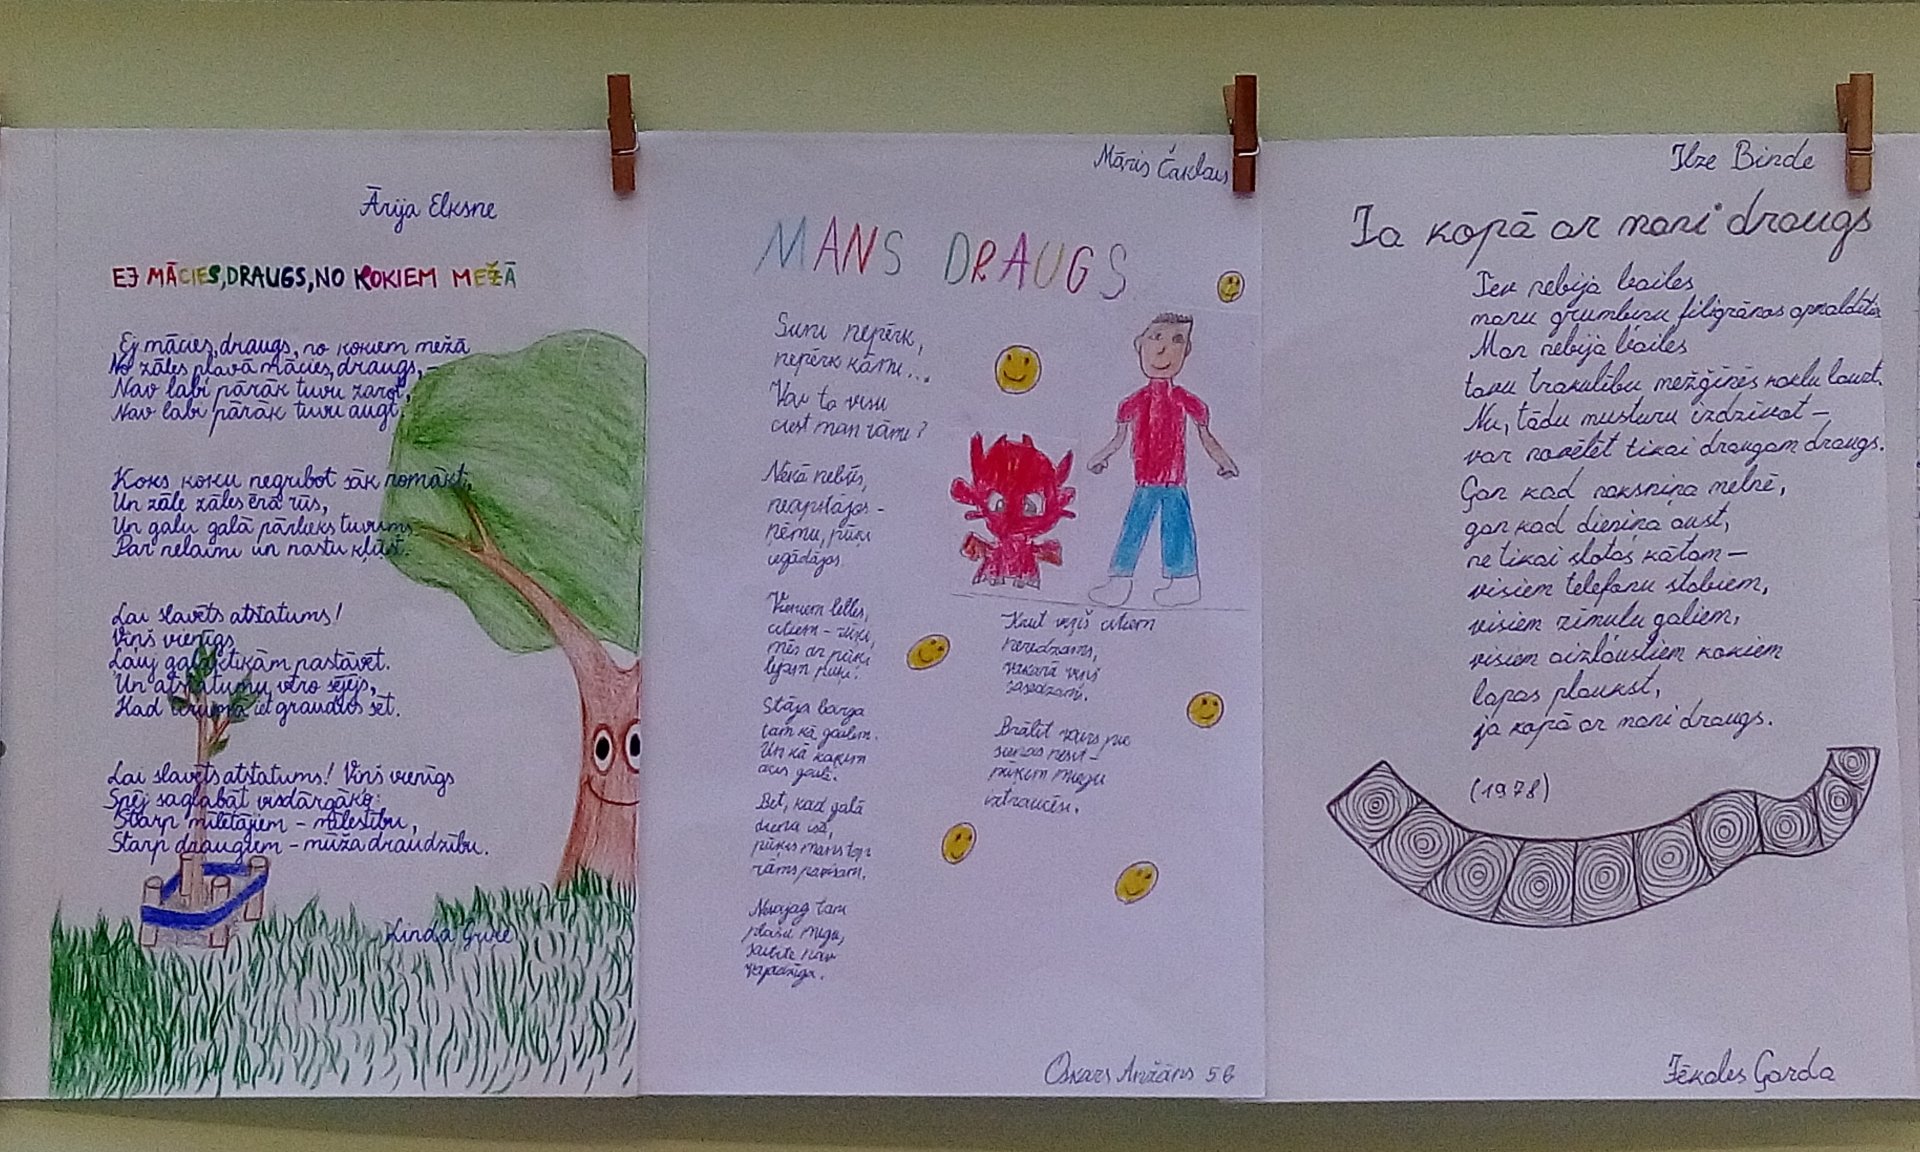 Ārija Elksne
EJ MĀCIES, DRAUGS, NO KOKIEM MEŽĀ
Ej mācies, draugs, no kokiem mežā
No zāles pļavā mācies, draugs, –
Nav labi pārāk tuvu zarot,
Nav labi pārāk tuvu augt.
Koks koku negribot sāk nomākt,
Un zāle zāles ēnā nīs,
Un galu galā pārlieks tuvums
Par nelaimi un nastu kļūst.
Lai slavēts atstatums!
Viņš vienīgs
Ļauj galaktikām pastāvēt.
Un atstatumu vēro sējējs,
Kad tīrumā iet graudus sēt.
Lai slavēts atstatums! Viņš vienīgs
Spēj saglabāt visdārgāko:
Starp mīlētājiem – mīlestību,
Starp draugiem – mūža draudzību.
Linda
Māris Čaklais
MANS DRAUGS
Suni nepērk,
nepērk kāmi...
Vai to visu
ciest man rāmi?
Nekā nebūs,
neapstājos –
ņēmu, pūķi
iegādājos.
Vieniem lelles,
citiem –
mēs ar pūķi
lepni
Stāja barga
tam kā gailim.
Un kā kaķim
acis gailē.
Bet, kad galā
diena iet,
pūķis mans top
rāms pavisam.
Nevajag tam
plašu migu,
nav
vajadzīga.
Kaut viņš citiem
neredzams,
vakarā viņš
Brālīt, nāvis pie
sienas
pūķim miegu
iztraucēsi.
Oskars Anžāns 5 b
Ilze Binde
Ja kopā ar mani draugs
Tev nebija bailes
manu grumbiņu filigrānos apmaldīties
Man nebija bailes
tavu trakulību mežģīnēs kaklu lauzt.
Nu, tādu musturu izdzīvot –
var novēlēt tikai draugam draugs.
Gan kad naksniņa melnē,
gan kad dieniņa aust,
ne tikai slotas kātam –
visiem telefonu stabiem,
visiem zīmuļu galiem,
visiem aizlauztiem kokiem
lapas plaukst,
ja kopā ar mani draugs.
(1978)
Jēkabs Garda